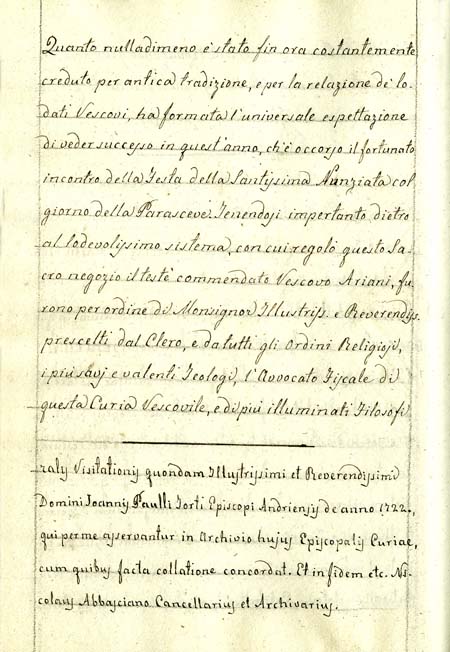 Quanto nulladimeno è stato fin ora costantemente
creduto per antica tradizione, e per la relazione de' lo-
dati Vescovi, ha formata l'universale espettazione
di veder successo in quest'anno, ch'è occorso il fortunato
incontro della Festa della Santissima Nunziata col
giorno della Parasceve. Tenendosi impertanto dietro
al lodevolissimo sistema, con cui regolò questo Sa-
cro negozio il testè commendato Vescovo Ariani, fu-
rono per ordine di Monsignor Illustriss. e Reverendiss.
prescelti dal Clero, e da tutti gli Ordini Religiosi,
i più savj e valenti Teologi, l'Avvocato Fiscale di
questa Curia Vescovile, e di più illuminati Filosofi
ralis Visitationis quondam Illustrissimi et Reverendissimi
Domini Joannis Paulli Torti Episcopi Andriensis de anno 1722.,
qui per me asservantur in Archivio hujus Episcopalis Curiae,
cum quibus facta collatione concordat. Et in fidem etc. Ni-
colaus Abbasciano Cancellarius et Archivarius.